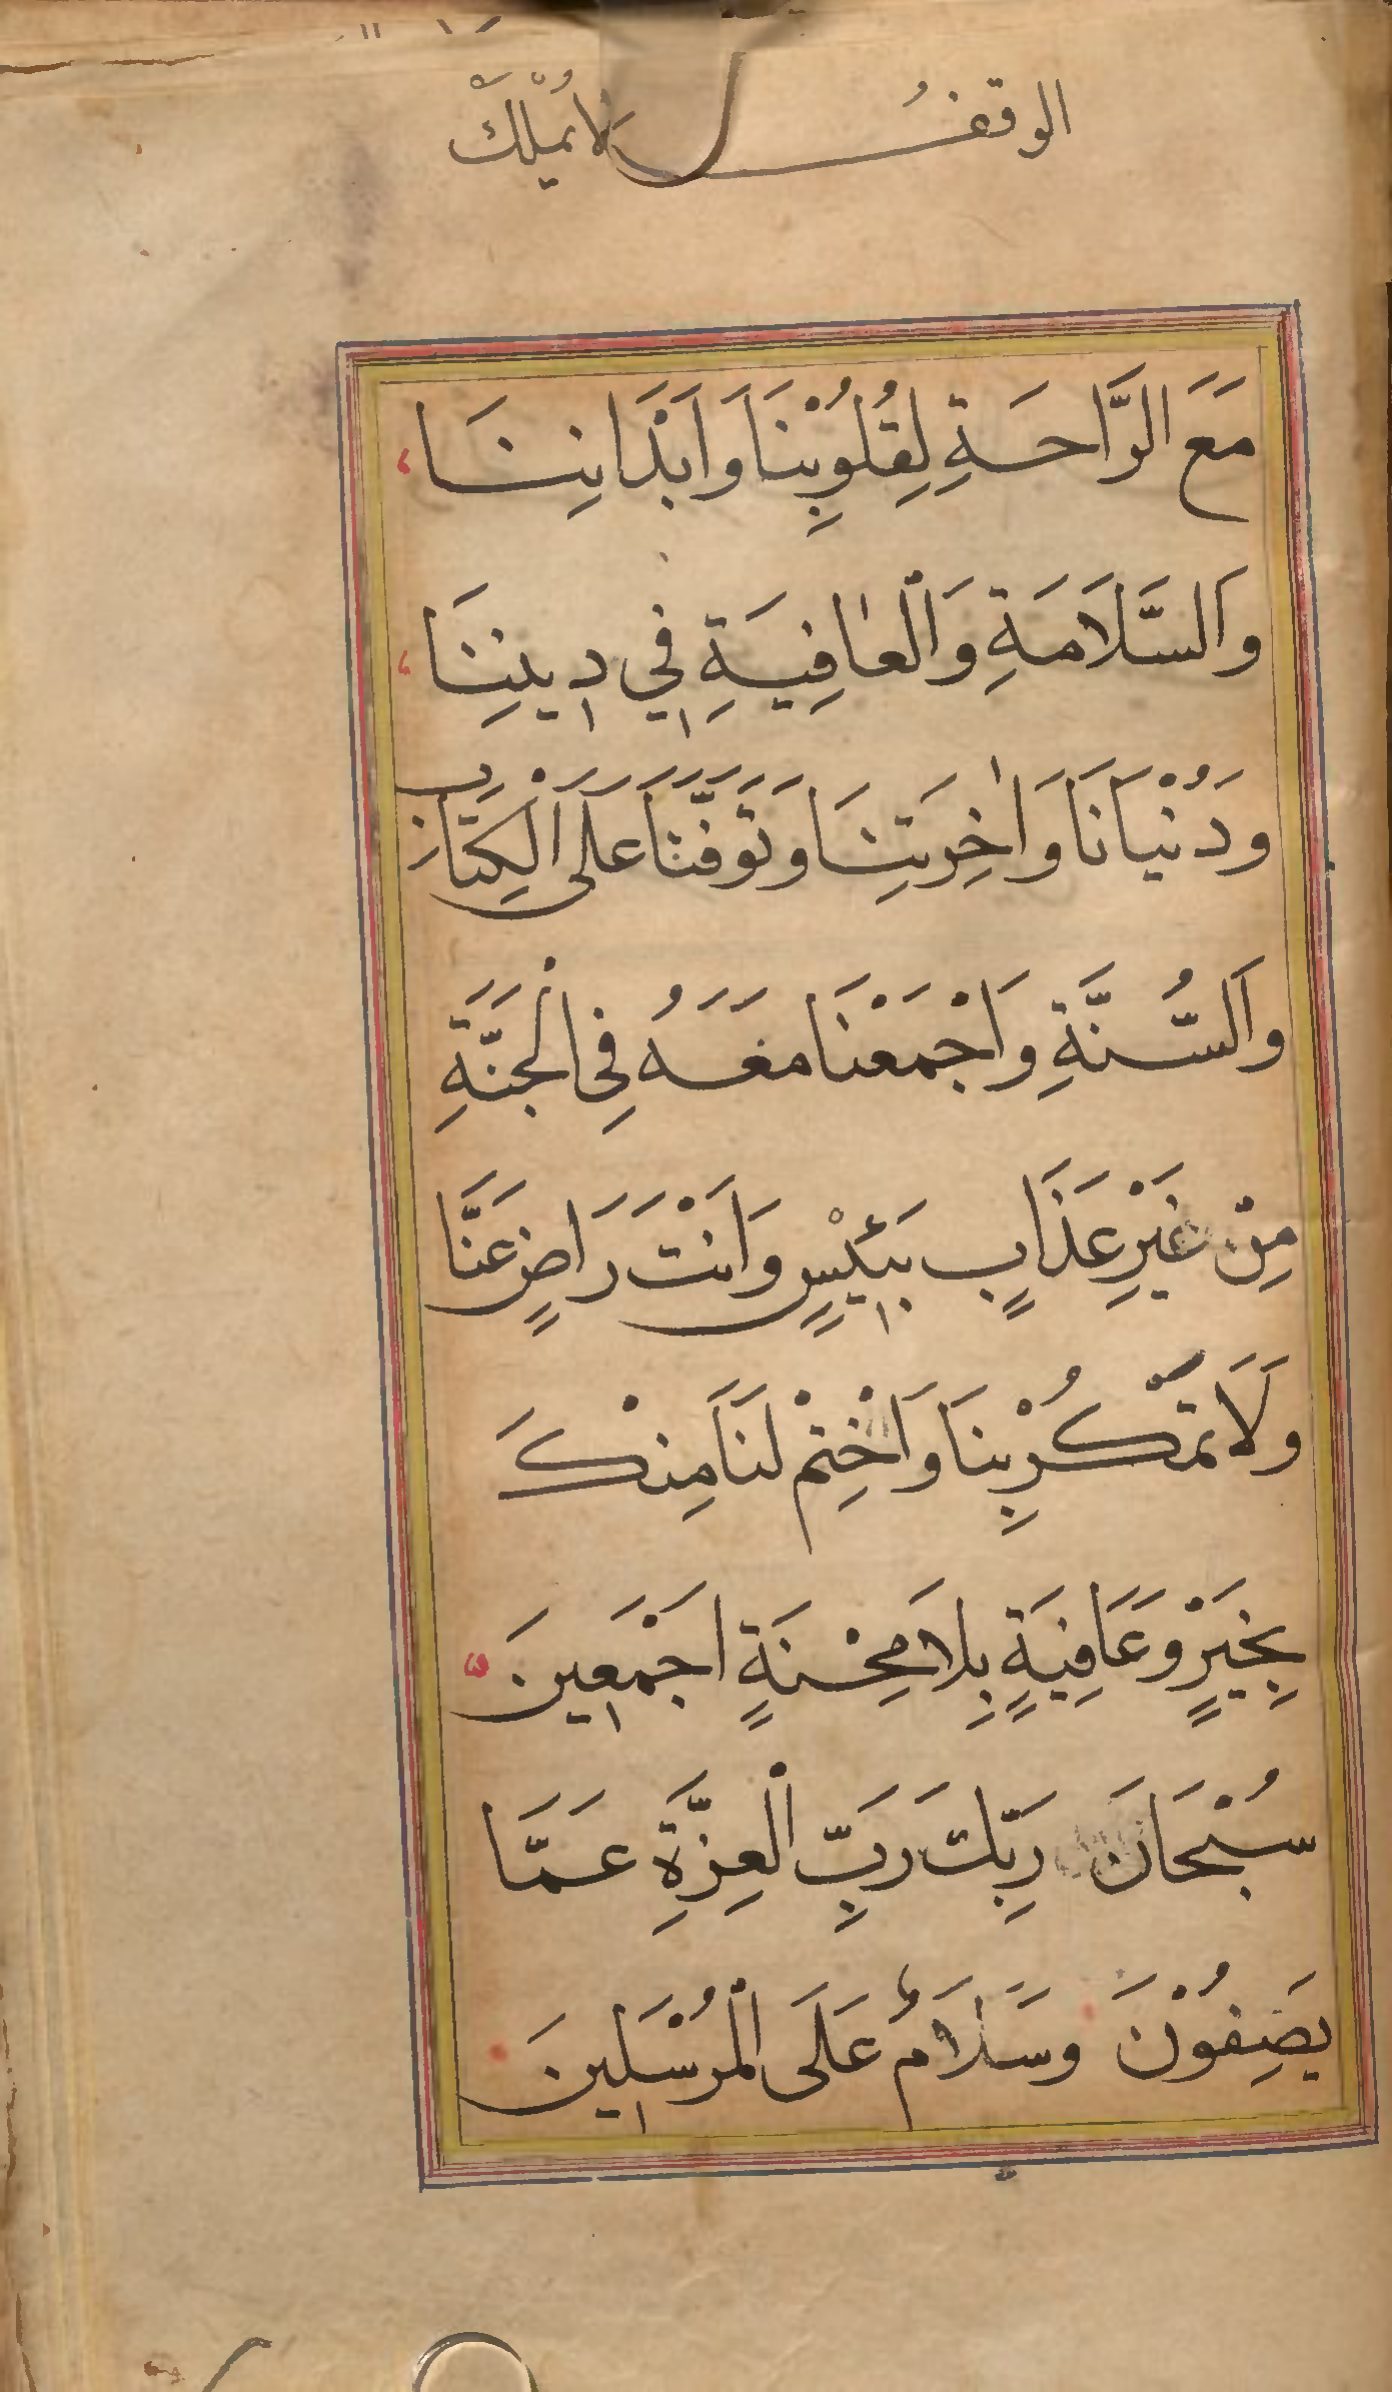 الوقف لا يُمْلَكْ
مَعَ الرَّاحَةِ لِقُلُوْبِنَا وَاَبْدَانِنَا،
وَالسَّلَامَةِ وَالْعَافِيَةِ فِي دِينِنَا،
وَدُنْيَانَا وَاٰخِرَتِنَا وَتَوَفَّنَا عَلَى الْكِتَابِ
وَالسُّنَّةِ وَاجْمَعْنَا مَعَهُ فِي الْجَنَّةِ
مِنْ غَيْرِ عَذَابٍ بَئِيْسٍ وَاَنْتَ رَاضٍ عَنَّا
وَلَا تَمْكُرْ بِنَا وَاخْتِمْ لَنَا مِنْكَ
بِخَيْرٍ وَعَافِيَةٍ بِلَا مِحْنَةٍ اَجْمَعِينَ
سُبْحَانَ رَبِّكَ رَبِّ الْعِزَّةِ عَمَّا
يَصِفُوْنَ وَسَلَامٌ عَلَى الْمُرْسَلِينَ